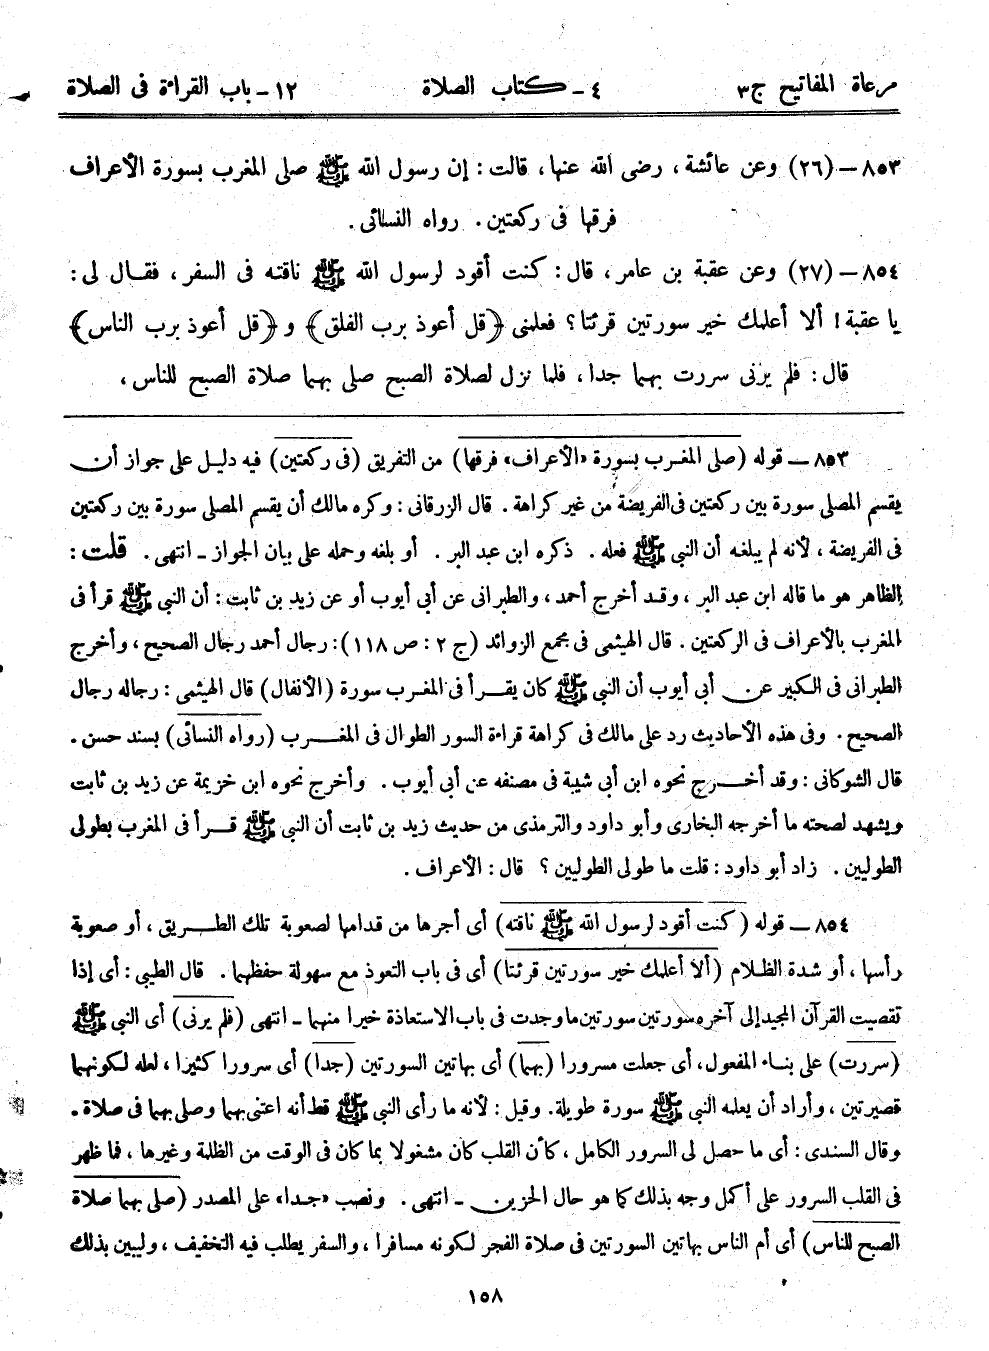 مرعاة المفاتيح ج٣
٤ ـ كتاب الصلاة
١٢ ـ باب القراءة فى الصلاة
٨٥٣ ـ (٢٦) وعن عائشة، رضى الله عنها، قالت: إن رسول الله ﷺ صلى المغرب بسورة الأعراف
فرقها فى ركعتين. رواه النسائى.
٨٥٤ ـ (٢٧) وعن عقبة بن عامر، قال: كنت أقود لرسول الله ﷺ ناقته فى السفر، فقال لى:
يا عقبة! ألا أعلمك خير سورتين قرئتا؟ فعلمنى ﴿قل أعوذ برب الفلق﴾ و ﴿قل أعوذ برب الناس﴾
قال: فلم يرنى سررت بهما جدا، فلما نزل لصلاة الصبح صلى بهما صلاة الصبح للناس،
٨٥٣ ـ قوله (صلى المغرب بسورة «الأعراف» فرقها) من التفريق (فى ركعتين) فيه دليل على جواز أن
يقسم المصلى سورة بين ركعتين فى الفريضة من غير كراهة. قال الزرقانى: وكره مالك أن يقسم المصلى سورة بين ركعتين
فى الفريضة، لأنه لم يبلغه أن النبى ﷺ فعله. ذكره ابن عبد البر. أو بلغه وحمله على بيان الجواز ـ انتهى. قلت:
الظاهر هو ما قاله ابن عبد البر، وقد أخرج أحمد، والطبرانى عن أبى أيوب أو عن زيد بن ثابت: أن النبى ﷺ قرأ فى
المغرب بالأعراف فى الركعتين. قال الهيثمى فى مجمع الزوائد (ج ٢: ص ١١٨): رجال أحمد رجال الصحيح، وأخرج
الطبرانى فى الكبير عن أبى أيوب أن النبى ﷺ كان يقرأ فى المغرب سورة (الأنفال) قال الهيثمى: رجاله رجال
الصحيح. وفى هذه الأحاديث رد على مالك فى كراهة قراءة السور الطوال فى المغرب (رواه النسائى) بسند حسن.
قال الشوكانى: وقد أخرج نحوه ابن أبى شيبة فى مصنفه عن أبى أيوب. وأخرج نحوه ابن خزيمة عن زيد بن ثابت
ويشهد لصحته ما أخرجه البخارى وأبو داود والترمذى من حديث زيد بن ثابت أن النبى ﷺ قرأ فى المغرب بطولى
الطوليين. زاد أبو داود: قلت ما طولى الطوليين؟ قال: الأعراف.
٨٥٤ ـ قوله (كنت أقود لرسول الله ﷺ ناقته) أى أجرها من قدامها لصعوبة تلك الطريق، أو صعوبة
رأسها، أو شدة الظلام (ألا أعلمك خير سورتين قرئتا) أى فى باب التعوذ مع سهولة حفظهما. قال الطيبى: أى إذا
تقصيت القرآن المجيد إلى آخره سورتين سورتين ما وجدت فى باب الاستعاذة خيرا منهما ـ انتهى (فلم يرنى) أى النبى ﷺ
(سررت) على بناء المفعول، أى جعلت مسرورا (بهما) أى بهاتين السورتين (جدا) أى سرورا كثيرا، لعله لكونهما
قصيرتين، وأراد أن يعلمه النبى ﷺ سورة طويلة. وقيل: لأنه ما رأى النبى ﷺ قط أنه اعتنى بهما وصلى بهما فى صلاة.
وقال السندى: أى ما حصل لى السرور الكامل، كأن القلب كان مشغولا بما كان فى الوقت من الظلمة وغيرها، فما ظهر
فى القلب السرور على أكمل وجه بذلك كما هو حال الحزين ـ انتهى. ونصب «جدا» على المصدر (صلى بهما صلاة
الصبح للناس) أى أم الناس بهاتين السورتين فى صلاة الفجر لكونه مسافرا، والسفر يطلب فيه التخفيف، وليبين بذلك
١٥٨